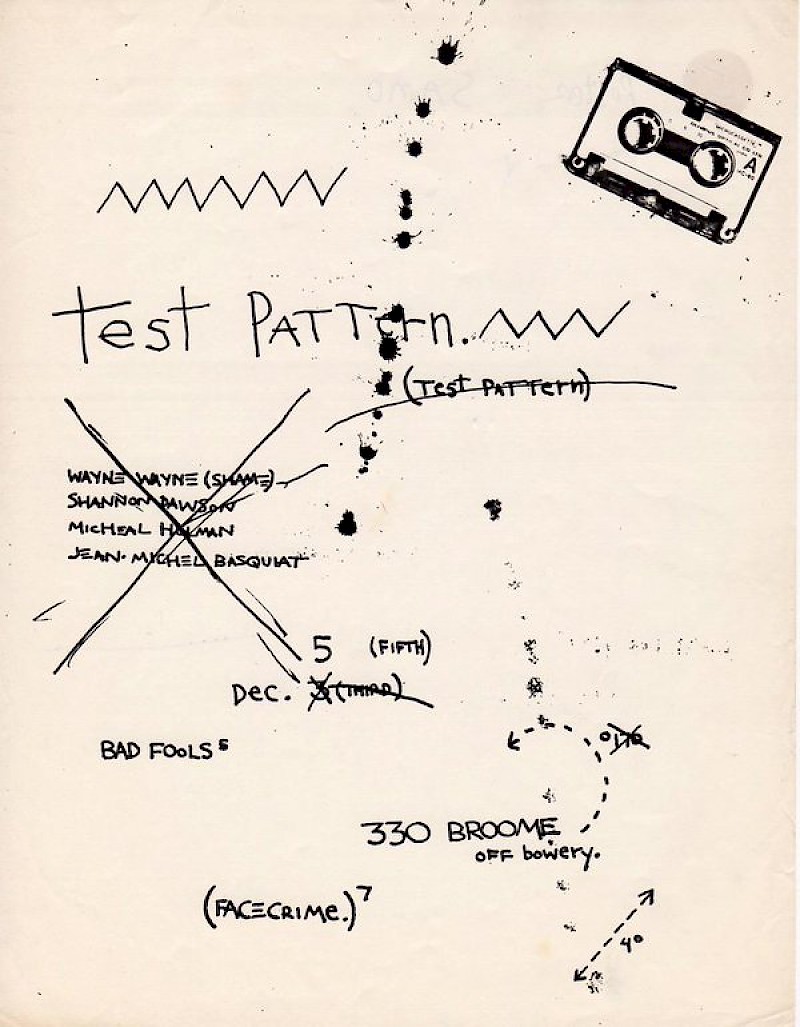 MICROCASSETTE
A
Test PATTern.
(Test PATTern)
WAYNE WAYNE (SHAME)
SHANNON DAWSON
MICHEAL HOLMAN
JEAN-MICHEL BASQUIAT
5 (FIFTH)
Dec. 3 (THIRD)
BAD FOOLS 5
330 BROOME
OFF bowery.
(FACECRIME.) 7
4°